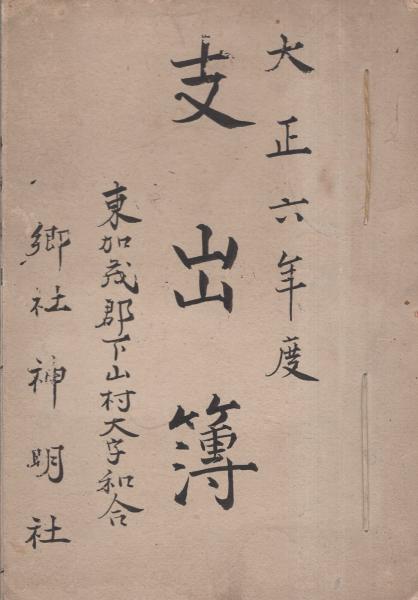 大正六年度
支出簿
東加茂郡下山村大字和合
郷社神明社